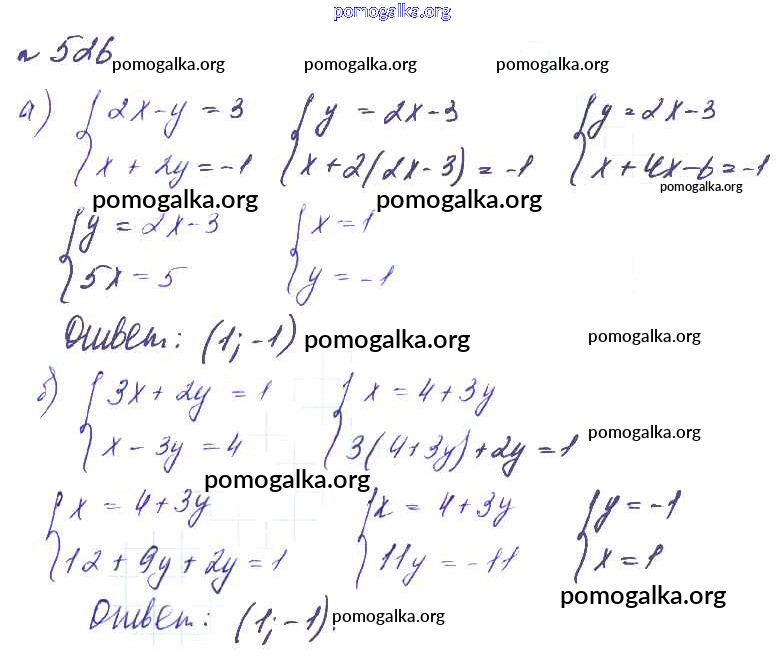 pomogalka.org
№ 526
pomogalka.org pomogalka.org pomogalka.org
а) { 2x-y = 3 { y = 2x-3 { y = 2x-3
x + 2y = -1 x+2(2x-3) = -1 x+4x-6=-1
pomogalka.org pomogalka.org pomogalka.org
{ y = 2x-3 { x = 1
5x = 5 y = -1
Ответ: (1; -1) pomogalka.org pomogalka.org
б) { 3x+2y = 1 { x = 4+3y
x - 3y = 4 3(4+3y)+2y=1 pomogalka.org
pomogalka.org
{ x = 4+3y { x = 4+3y { y = -1
12+9y+2y=1 11y = -11 x=1
pomogalka.org
Ответ: (1; -1). pomogalka.org